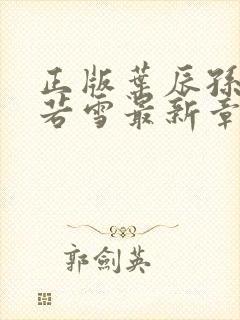 正版叶辰孫
若雪最新章
郭劍英